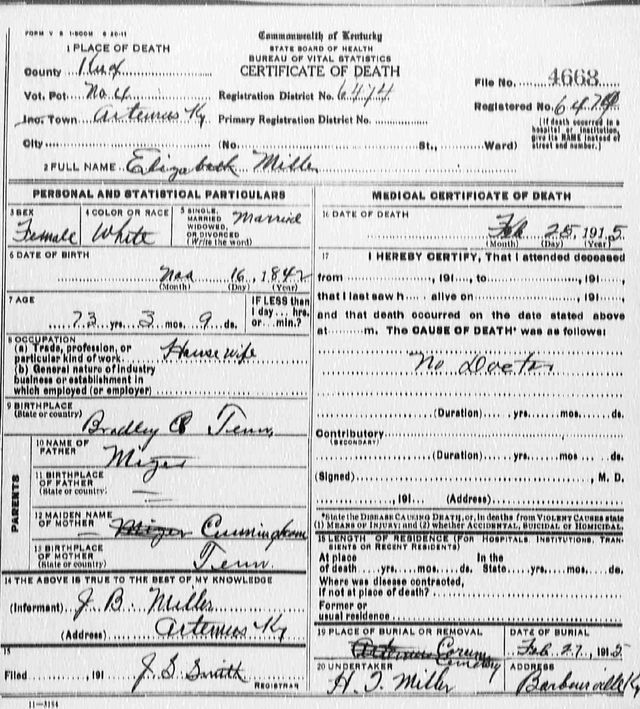 FORM V S 1-500M 6 20-11
Commonwealth of Kentucky
STATE BOARD OF HEALTH
BUREAU OF VITAL STATISTICS
CERTIFICATE OF DEATH
1 PLACE OF DEATH
County Knox
Vot. Pct. No. 4
Inc. Town Artemus Ky
City
Registration District No. 6474
Primary Registration District No.
(No. St., Ward)
File No. 4668
Registered No.
(If death occurred in a
hospital or institution,
give its NAME instead of
street and number.)
2 FULL NAME Elizabeth Miller
PERSONAL AND STATISTICAL PARTICULARS
3 SEX
Female
4 COLOR OR RACE
White
5 SINGLE,
MARRIED
WIDOWED,
OR DIVORCED
(Write the word)
Married
6 DATE OF BIRTH
16, 1842
(Month) (Day) (Year)
7 AGE
73 yrs. 3 mos. 9 ds.
IF LESS than
1 day... hrs.
or... min.?
8 OCCUPATION
(a) Trade, profession, or
particular kind of work House wife
(b) General nature of industry
business or establishment in
which employed (or employer)
9 BIRTHPLACE
(State or country)
Bradley Tenn
PARENTS
10 NAME OF
FATHER
11 BIRTHPLACE
OF FATHER
(State or country)
12 MAIDEN NAME
OF MOTHER
Cunningham
13 BIRTHPLACE
OF MOTHER
(State or country)
Tenn.
14 THE ABOVE IS TRUE TO THE BEST OF MY KNOWLEDGE
(Informant) J. B. Miller
(Address) Artemus Ky
15
Filed , 191 J. S. Smith
REGISTRAR
11-3184
MEDICAL CERTIFICATE OF DEATH
16 DATE OF DEATH
Feb 25 1915
(Month) (Day) (Year)
17 I HEREBY CERTIFY, That I attended deceased
from , 191 , to , 191 ,
that I last saw h alive on , 191 ,
and that death occurred on the date stated above
at m. The CAUSE OF DEATH* was as follows:
No Doctor
(Duration) yrs. mos. ds.
Contributory
(SECONDARY)
(Duration) yrs. mos. ds.
(Signed) , M. D.
, 191 (Address)
*State the DISEASE CAUSING DEATH, or, in deaths from VIOLENT CAUSES state
(1) MEANS OF INJURY; and (2) whether ACCIDENTAL, SUICIDAL OR HOMICIDAL.
18 LENGTH OF RESIDENCE (FOR HOSPITALS, INSTITUTIONS, TRAN-
SIENTS OR RECENT RESIDENTS)
At place In the
of death yrs. mos. ds. State yrs. mos. ds.
Where was disease contracted,
if not at place of death?
Former or
usual residence
19 PLACE OF BURIAL OR REMOVAL
Cemetery
DATE OF BURIAL
Feb. 27, 1915
20 UNDERTAKER
H. T. Miller
ADDRESS
Barbourville Ky